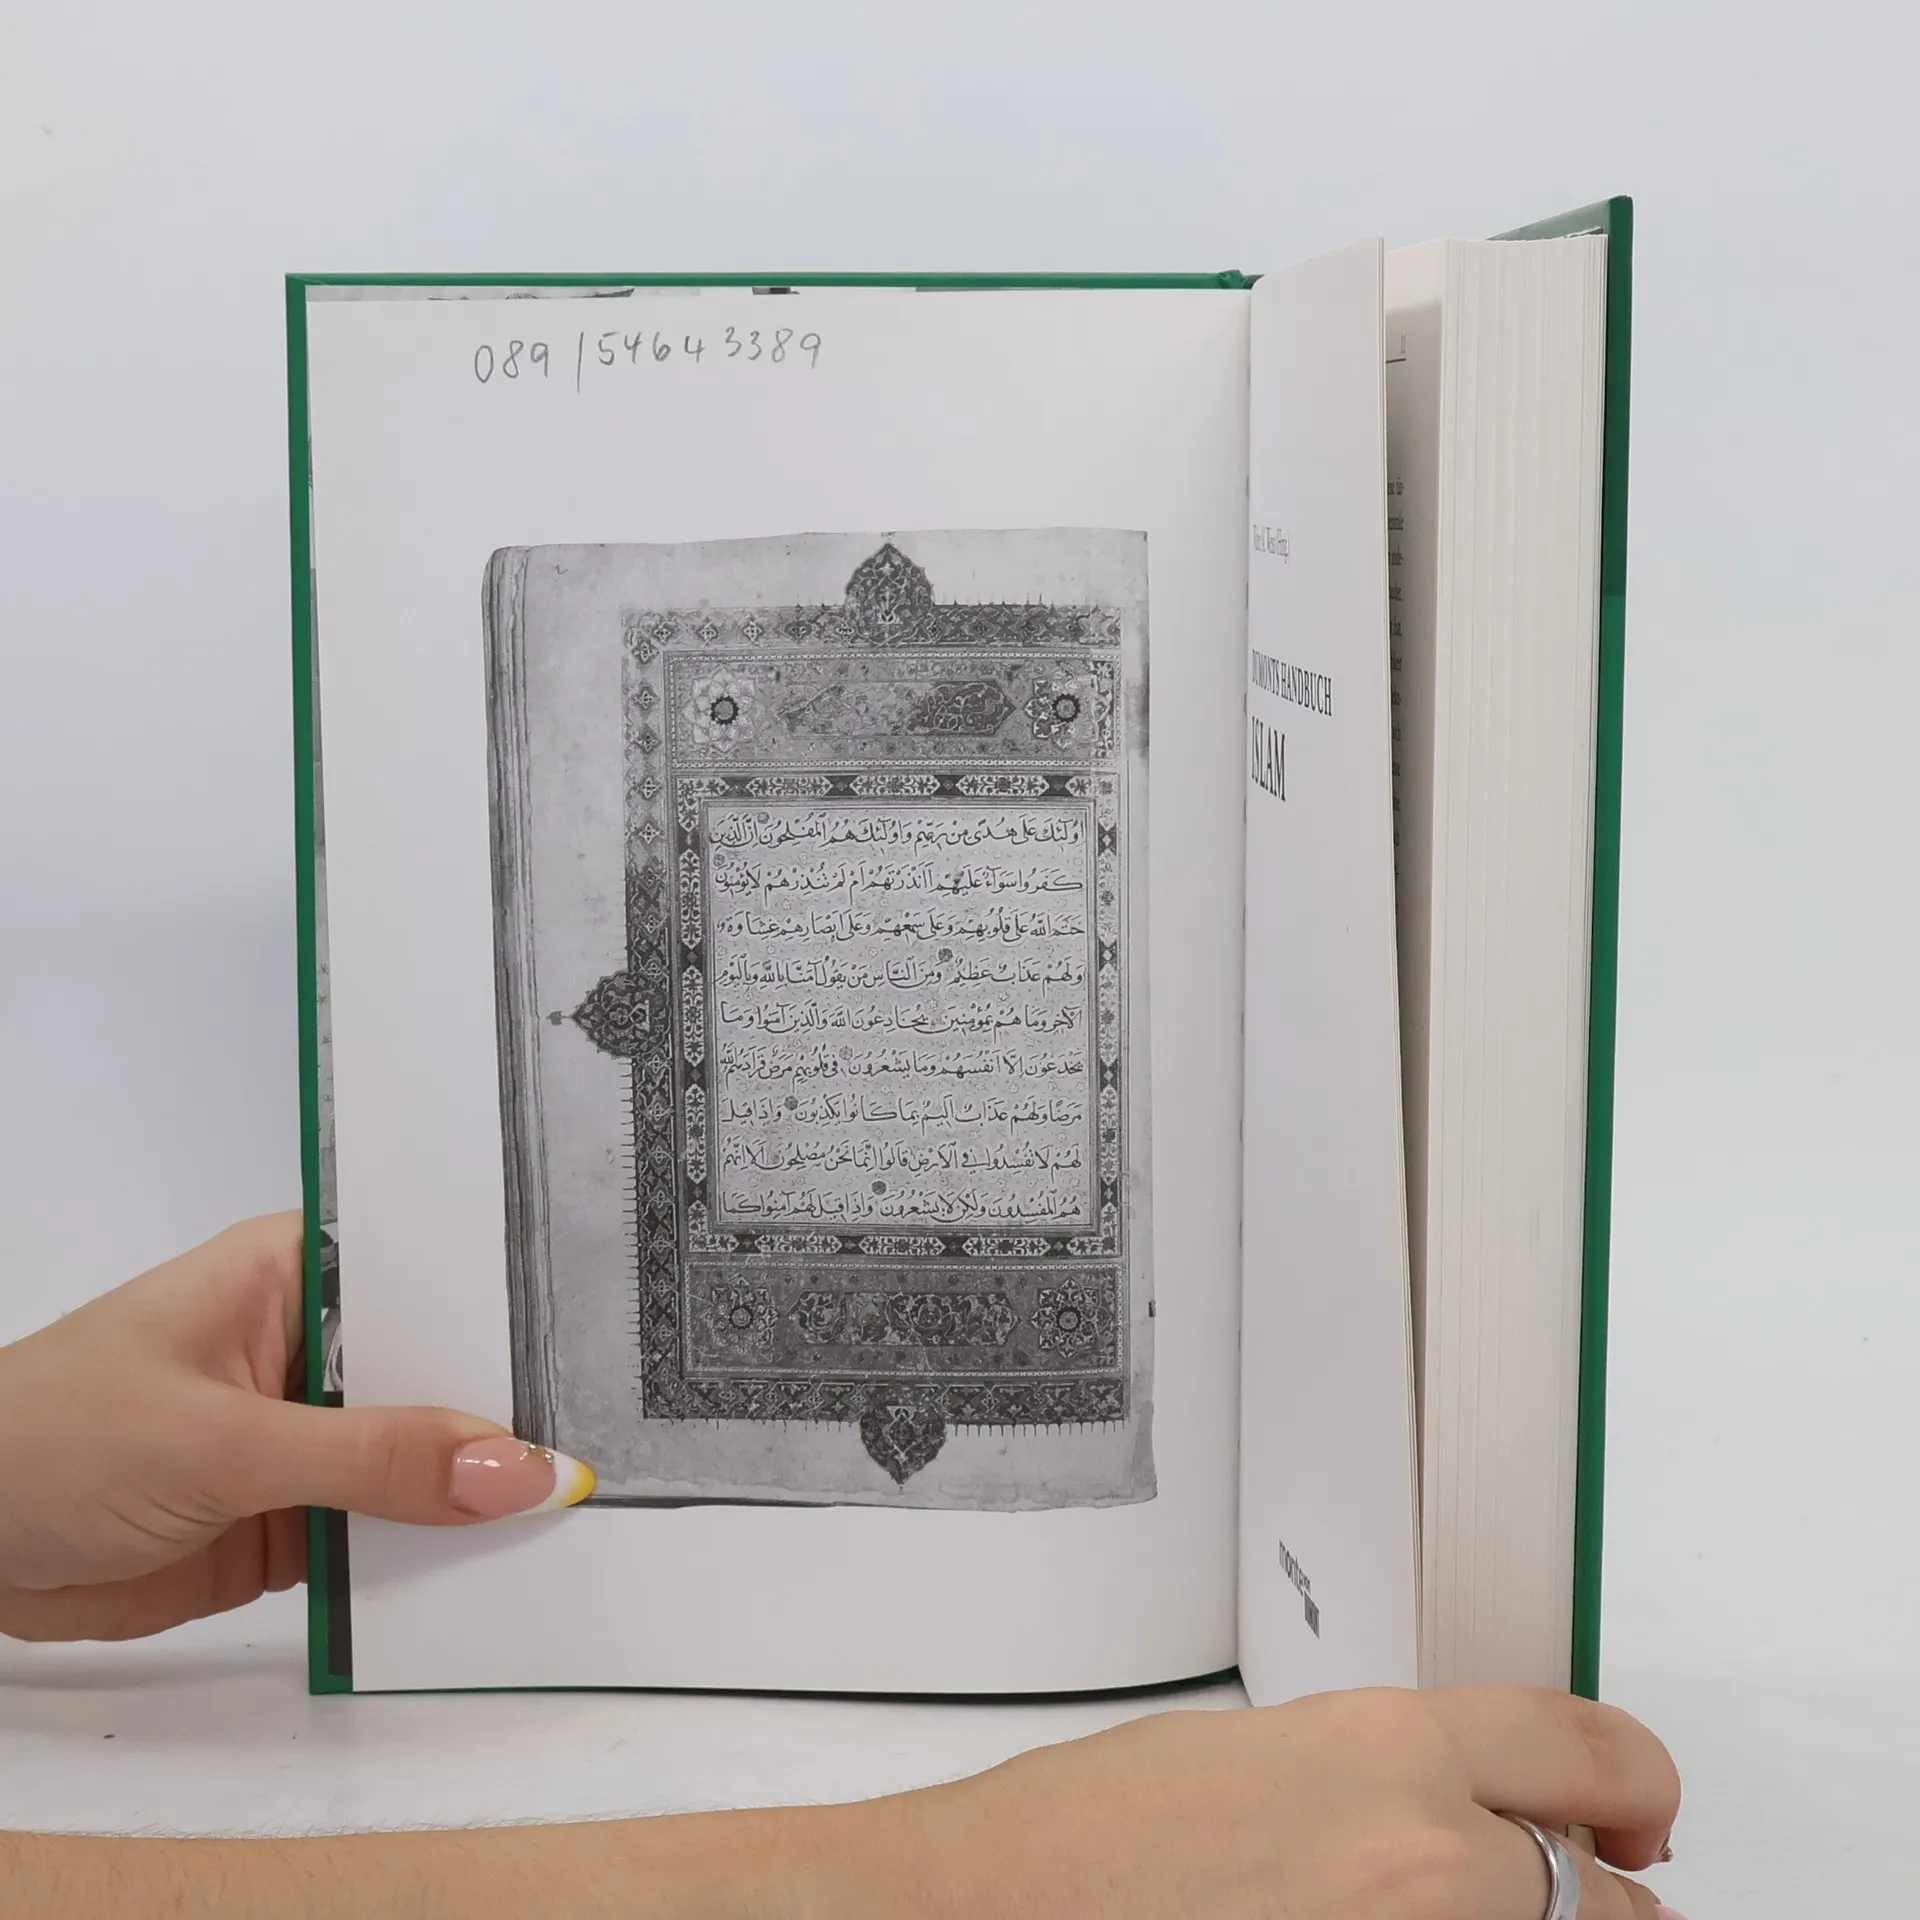 089/54643389
اُولٰئِكَ عَلٰى هُدًى مِنْ رَبِّهِمْ وَاُولٰئِكَ هُمُ الْمُفْلِحُونَ اِنَّ الَّذِينَ
كَفَرُوا سَوَآءٌ عَلَيْهِمْ أَاَنْذَرْتَهُمْ اَمْ لَمْ تُنْذِرْهُمْ لَا يُؤْمِنُونَ
خَتَمَ اللّٰهُ عَلٰى قُلُوبِهِمْ وَعَلٰى سَمْعِهِمْ وَعَلٰى اَبْصَارِهِمْ غِشَاوَةٌ و
وَلَهُمْ عَذَابٌ عَظِيمٌ وَمِنَ النَّاسِ مَنْ يَقُولُ آمَنَّا بِاللّٰهِ وَبِالْيَوْمِ
الْآخِرِ وَمَا هُمْ بِمُؤْمِنِينَ يُخَادِعُونَ اللّٰهَ وَالَّذِينَ آمَنُوا وَمَا
يَخْدَعُونَ اِلَّا اَنْفُسَهُمْ وَمَا يَشْعُرُونَ فِى قُلُوبِهِمْ مَرَضٌ فَزَادَهُمُ اللّٰهُ
مَرَضًا وَلَهُمْ عَذَابٌ اَلِيمٌ بِمَا كَانُوا يَكْذِبُونَ وَاِذَا قِيلَ
لَهُمْ لَا تُفْسِدُوا فِى الْاَرْضِ قَالُوا اِنَّمَا نَحْنُ مُصْلِحُونَ اَلَا اِنَّهُمْ
هُمُ الْمُفْسِدُونَ وَلٰكِنْ لَا يَشْعُرُونَ وَاِذَا قِيلَ لَهُمْ آمِنُوا كَمَا
DUMONTS HANDBUCH
ISLAM
monte von
DUMONT
11